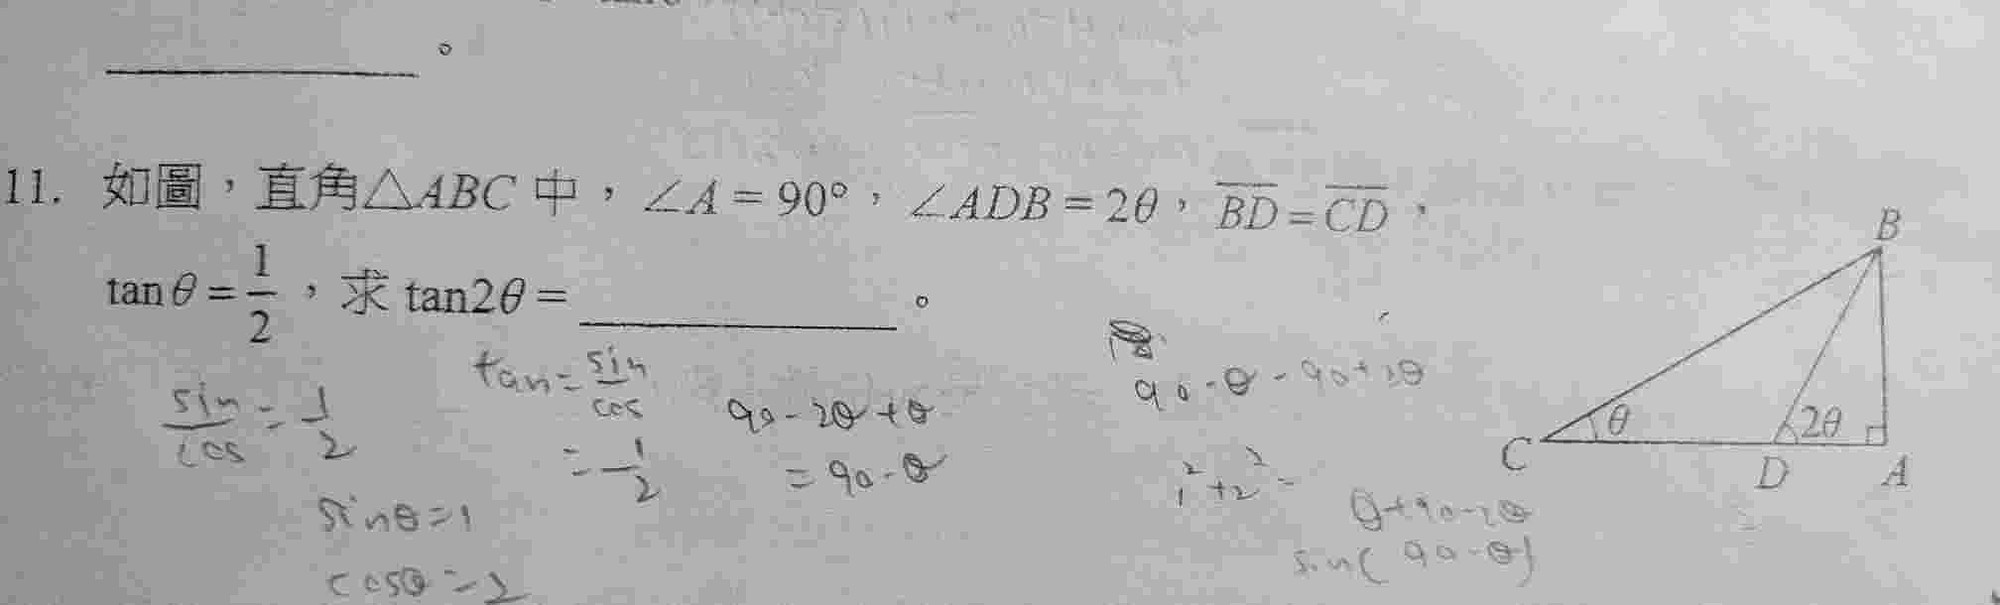 ________。
11. 如圖，直角△ABC 中，∠A = 90°，∠ADB = 2θ，\overline{BD} = \overline{CD}，
tanθ = \frac{1}{2}，求 tan2θ = ________。
B
C θ D 2θ A
\frac{sin}{cos} = \frac{1}{2}
sinθ = 1
cosθ = 2
tan = \frac{sin}{cos}
= \frac{1}{2}
90 - 2θ + θ
= 90 - θ
90 - θ - 90 + 2θ
1² + 2² =
θ + 90 - 2θ
sin( 90 - θ)